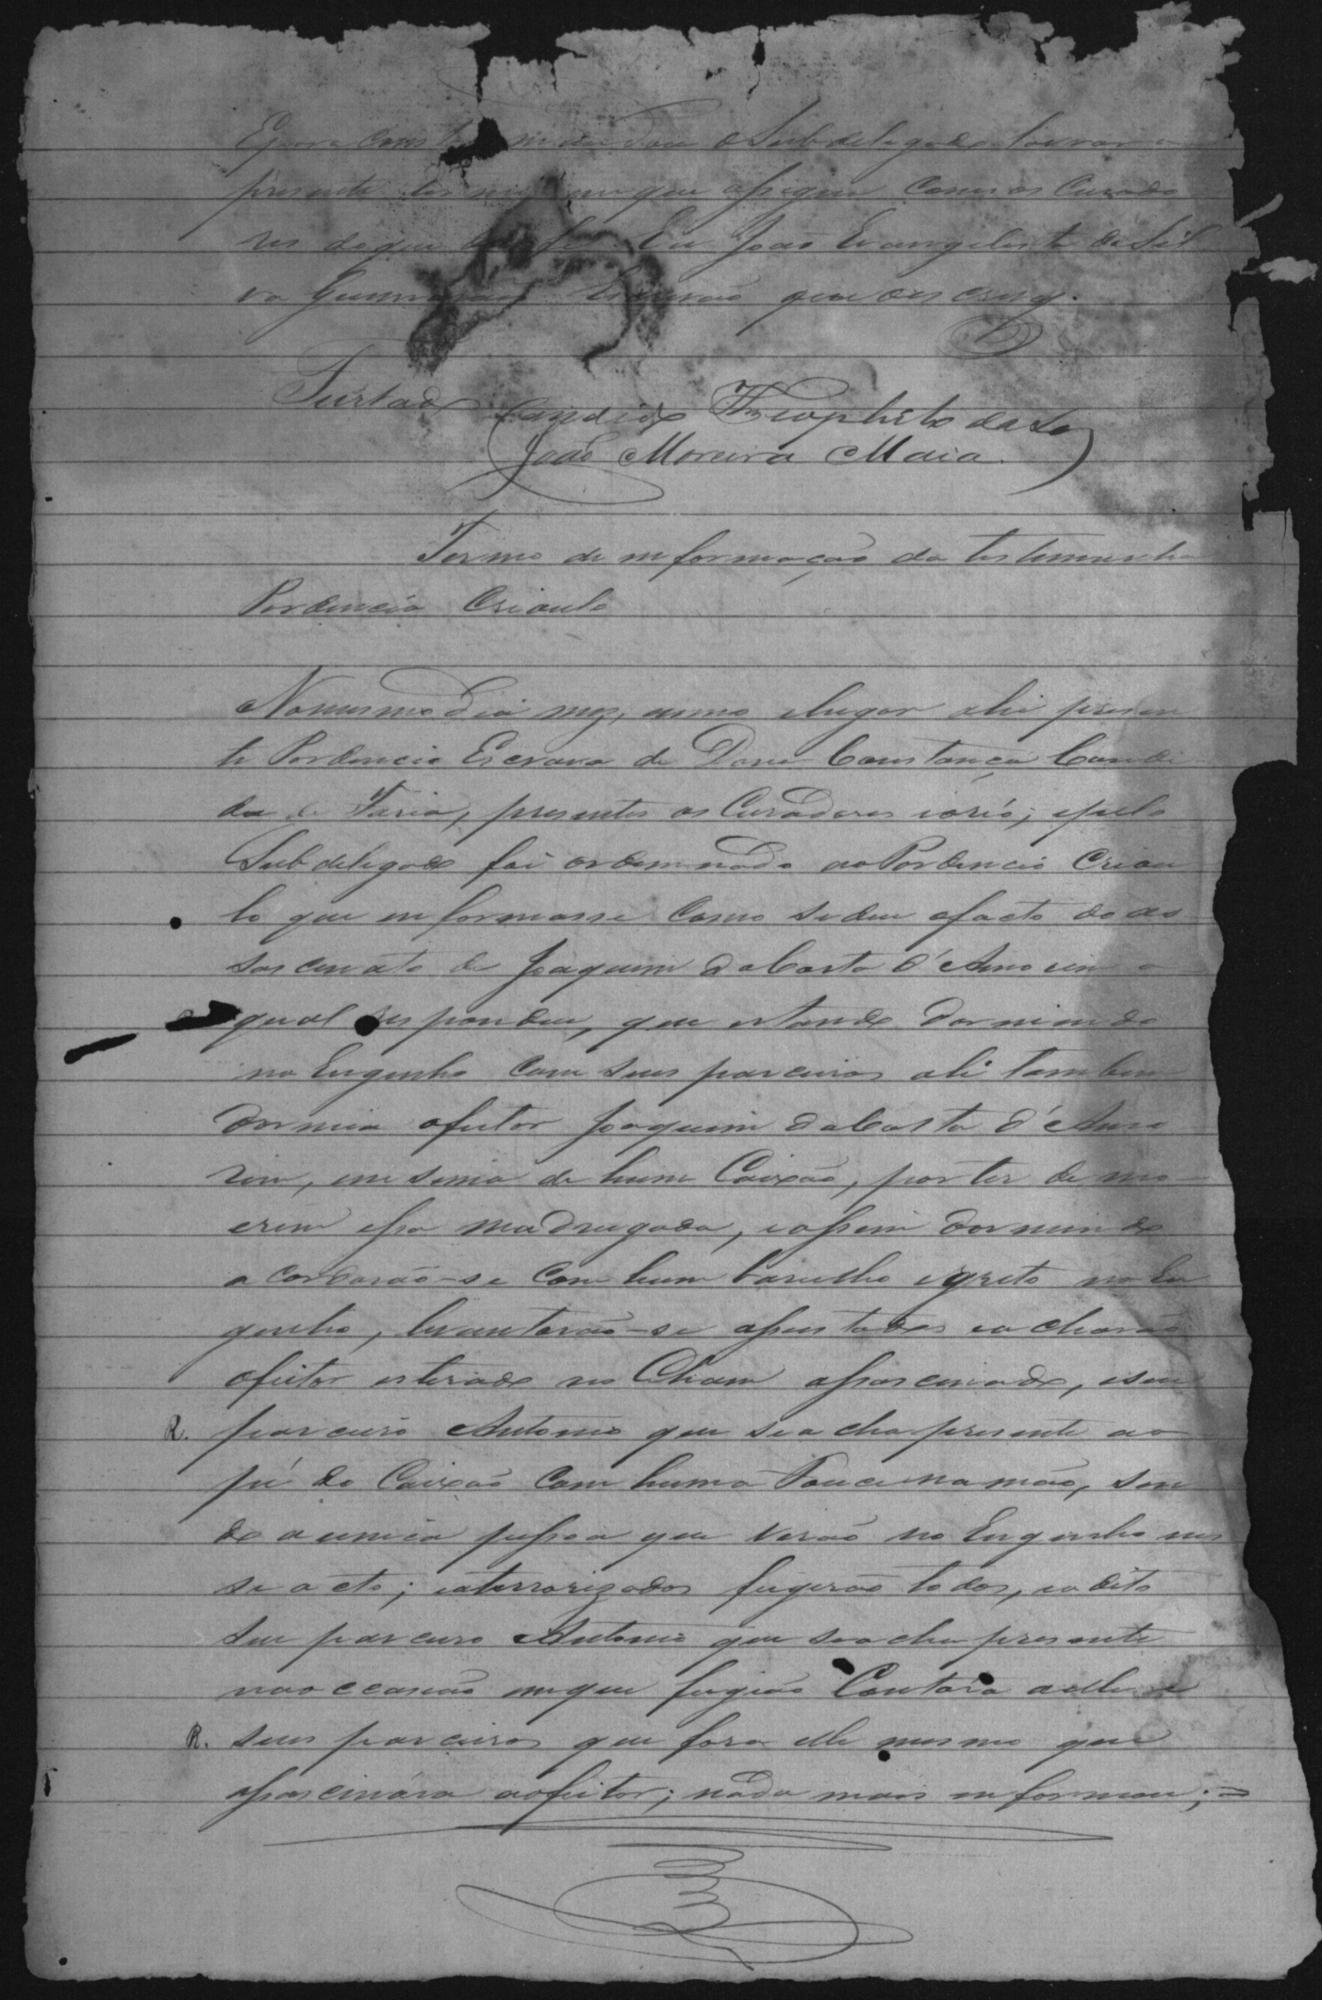 E para constar mandou o Subdelegado lavrar o
presente termo em que assigna com os Curado
res do que dou fé. Eu João Evangelista da Sil
va Guimarães Escrivão que o escrevy.
Furtado Candido Theophilo da
João Moreira Maia.
Termo de informação da testemunha
Pordencio Crioulo
No mesmo dia mez, anno e lugar ahi presen
te Pordencio Escravo de Dona Constança Candi
da de Faria, presentes os Curadores e o réo; e pelo
Subdelegado foi ordennado ao Pordencio Criou
lo que informasse como se deu o facto do as
sascinato de Joaquim da Costa d'Amorim o
qual respondeu, que estando dormindo
no Engenho com seus parceiros ali tambem
dormia o feitor Joaquim da Costa d'Amo
rim, em sima de hum Caixão, por ter de mo
erem essa madrugada, e assim dormindo
acordarão-se com hum barulho e grito no En
genho, levantarão-se assustados e acharão
o feitor estirado no Cham assascinado, e seu
R. parceiro Antonio que se acha presente ao
pé do Caixão com huma Fouce na mão, sen
do a unica pessoa que verão no Engenho nes
se acto; e aterrorizados fugirão todos, e o dito
seu parceiro Antonio que se acha presente
na occasião em que fugião Contára a elle e
R. seus parceiros que fora elle mesmo que
assascinára ao feitor; nada mais informou;